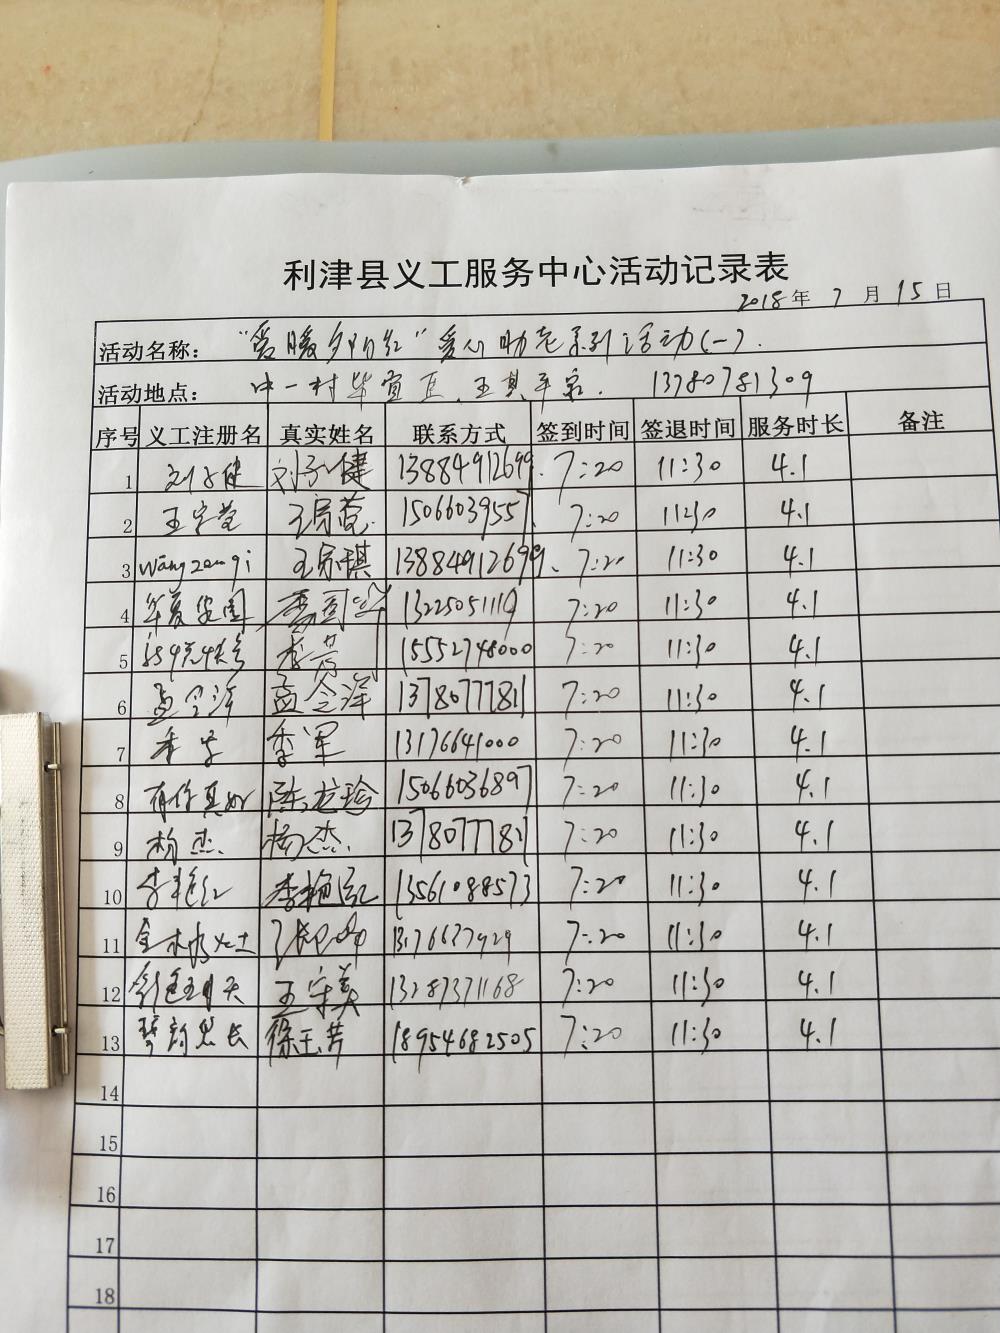 利津县义工服务中心活动记录表
2018年 7月 15日
活动名称： “爱暖夕阳红”爱心助老系列活动(一).
活动地点： 中一村毕宜 、王其平家. 13780781309
序号 义工注册名 真实姓名 联系方式 签到时间 签退时间 服务时长 备注
1 刘子健 刘子健 13884912699. 7:20 11:30 4.1
2 王宗莹 王宗莹 15066039557 7:20 11:30 4.1
3 wangzongqi 王宗琪 13884912699. 7:20 11:30 4.1
4 13225051119 7:20 11:30 4.1
5 李芳 15552748000 7:20 11:30 4.1
6 孟令洋 孟令洋 13780777811 7:20 11:30 4.1
7 季军 13176641000 7:20 11:30 4.1
8 有你真好 陈 珍 15066036897 7:20 11:30 4.1
9 杨杰. 杨杰. 13780777821 7:20 11:30 4.1
10 李艳红 李艳红 13561088573 7:20 11:30 4.1
11 金木水火土 13176637929 7:20 11:30 4.1
12 王宗美 13287371168 7:20 11:30 4.1
13 琴韵悠长 徐玉芳 18954682505 7:20 11:30 4.1
14
15
16
17
18